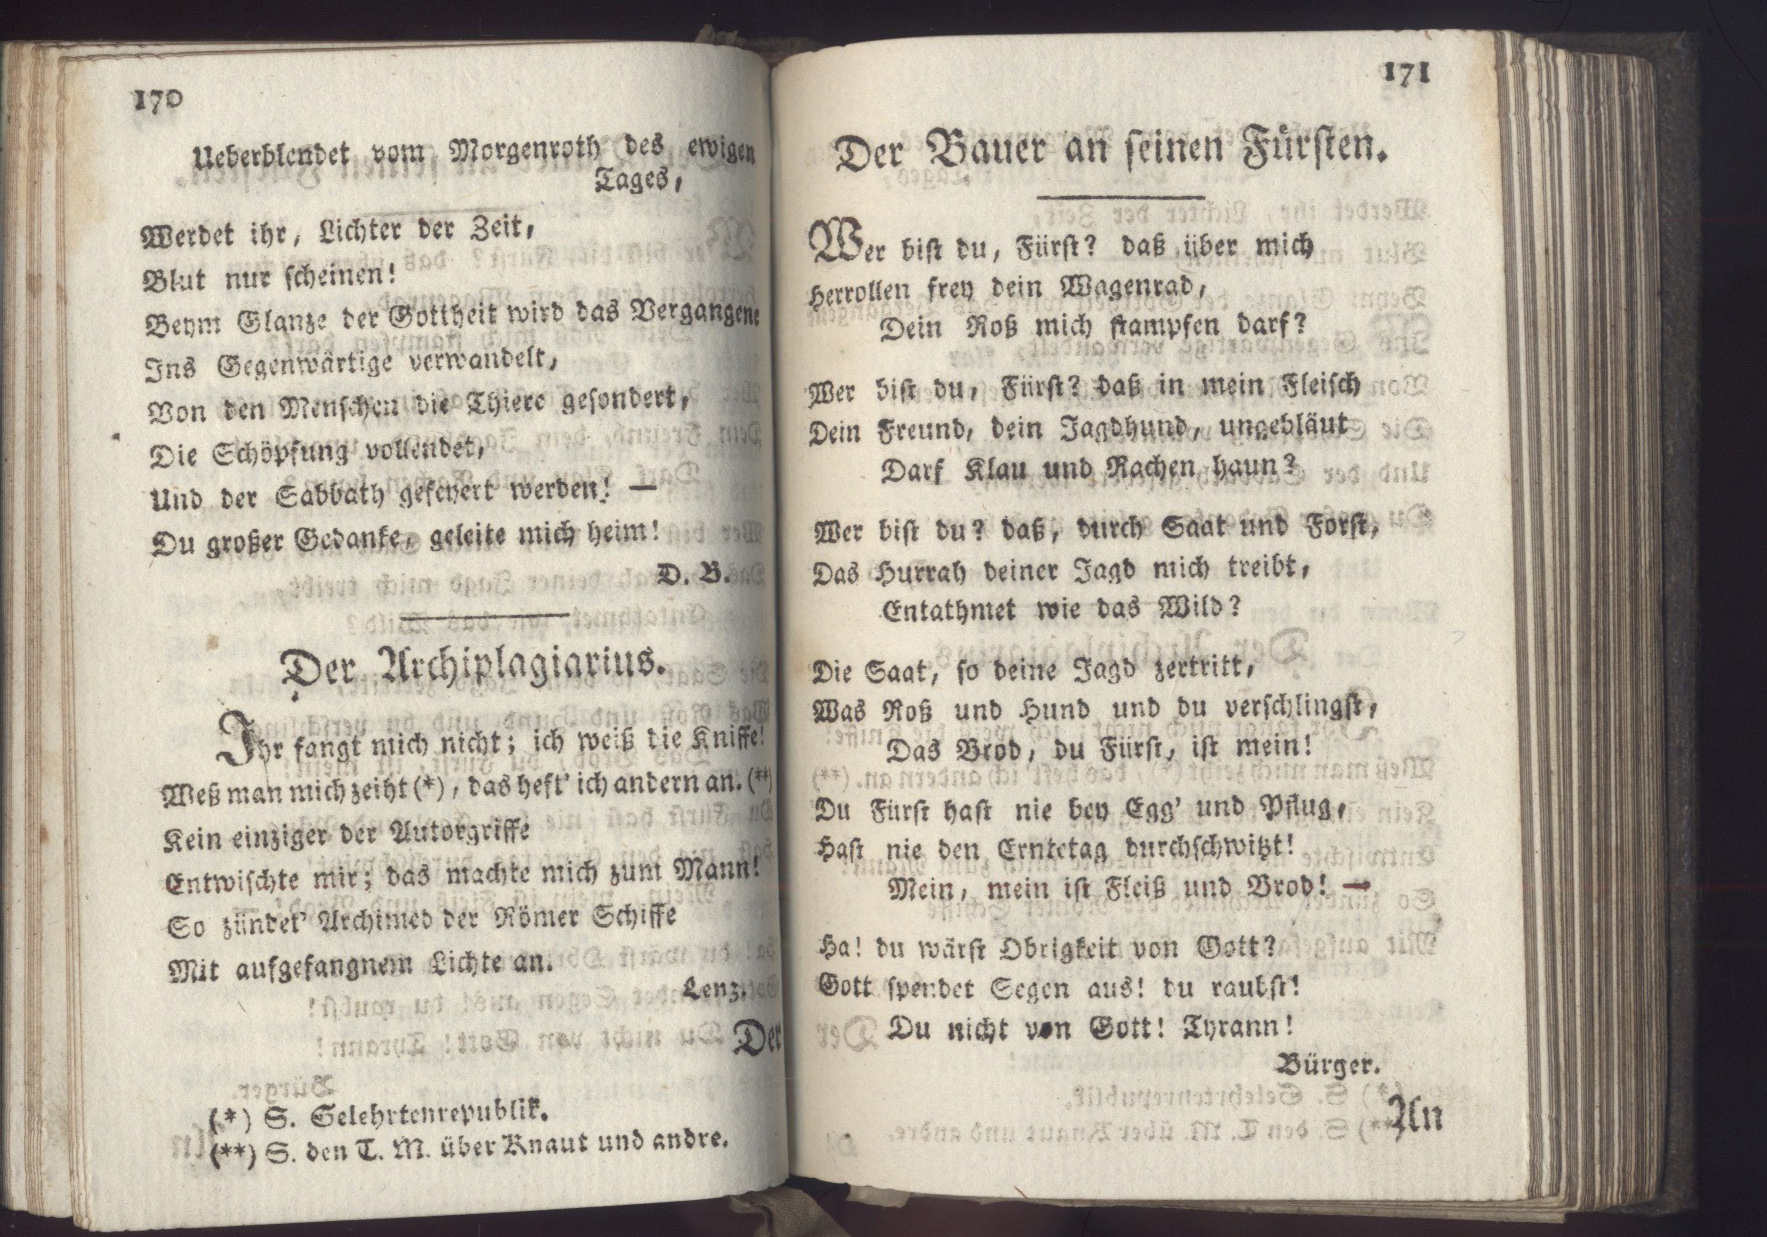 170
Ueberblendet vom Morgenroth des ewigen
Tages,
Werdet ihr, Lichter der Zeit,
Blut nur scheinen!
Beym Glanze der Gottheit wird das Vergangene
Ins Gegenwärtige verwandelt,
Von den Menschen die Thiere gesondert,
Die Schöpfung vollendet,
Und der Sabbath gefeyert werden! —
Du großer Gedanke, geleite mich heim!
D. B.
Der Archiplagiarius.
Ihr fangt mich nicht; ich weiß die Kniffe!
Weß man mich zeiht (*), das heft' ich andern an. (**)
Kein einziger der Autorgriffe
Entwischte mir; das machte mich zum Mann!
So zündet' Archimed der Römer Schiffe
Mit aufgefangnem Lichte an.
Lenz.
Der
(*) S. Gelehrtenrepublik.
(**) S. den T. M. über Knaut und andre.
171
Der Bauer an seinen Fürsten.
Wer bist du, Fürst? daß über mich
Herrollen frey dein Wagenrad,
Dein Roß mich stampfen darf?
Wer bist du, Fürst? daß in mein Fleisch
Dein Freund, dein Jagdhund, ungebläut
Darf Klau und Rachen haun?
Wer bist du? daß, durch Saat und Forst,
Das Hurrah deiner Jagd mich treibt,
Entathmet wie das Wild?
Die Saat, so deine Jagd zertritt,
Was Roß und Hund und du verschlingst,
Das Brod, du Fürst, ist mein!
Du Fürst hast nie bey Egg' und Pflug,
Hast nie den Erntetag durchschwitzt!
Mein, mein ist Fleiß und Brod! —
Ha! du wärst Obrigkeit von Gott?
Gott spendet Segen aus! du raubst!
Du nicht von Gott! Tyrann!
Bürger.
An